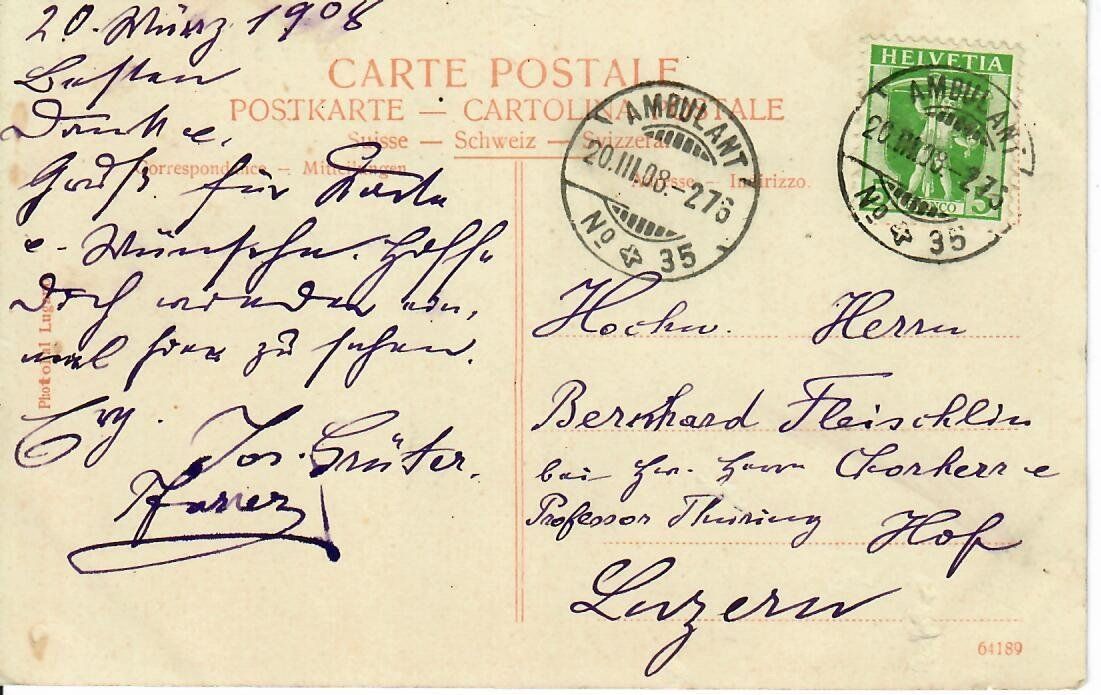 20. März 1908
Besten
Dank u.
Gruß für Karte
u. Wünsche. Hoffe
Dich wieder ein,
mal hier zu sehen.
Jos. Grüter.
Pfarrer
CARTE POSTALE
POSTKARTE — CARTOLINA POSTALE
Suisse — Schweiz — Svizzera
Correspondence — Mitteilungen
Adresse — Indirizzo.
HELVETIA
FRANCO
5
AMBULANT
20.III.08.–276
No 35
AMBULANT
20.III.08.–276
No 35
Hochw. Herrn
Bernhard Fleischlin
bei Hw. Herrn Chorherr e
Professor Thüring Hof
Luzern
64189